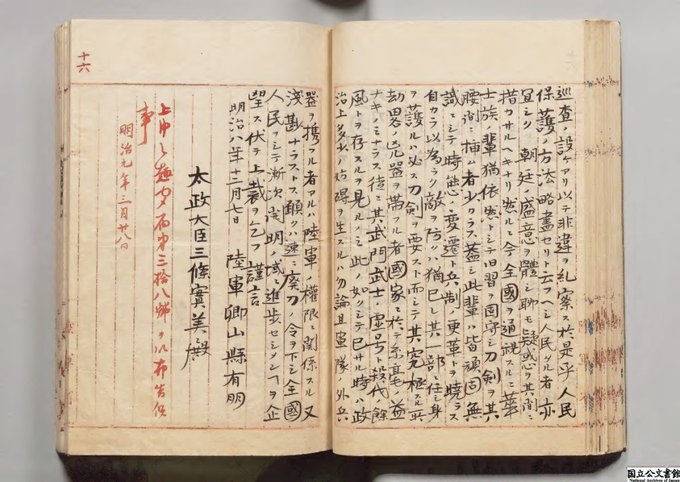 巡查ノ設ケアリ以テ非違ヲ糺察ス於是乎人民
保護ノ方法略盡セリト云フヘシ人民タル者亦
宜シク朝廷ノ盛意ヲ體シ聊モ疑惑ヲ其間ニ
措カサルヘキナリ然ルニ今全國ヲ通視スルニ華
士族ノ輩猶依然トシテ旧習ヲ固守シ刀剣ヲ其
腰間ニ挿ム者少カラス蓋シ此輩ハ皆頑固無
識ニシテ時態ノ変遷ト兵制ノ更革トヲ暁ラス
自カラ以為ラク敵ヲ防クハ猶已レ其一部ニ任シ身
ヲ護ルハ必ス刀剣ヲ要スト而シテ其究極スル所
劫畧ノ兇器ヲ帯フル者國家ニ於テ糸毫ノ益
ナキノミナラス徒ニ其武門武士ノ虚号ト殺伐ノ餘
風トヲ存スルヲ見ルノミ此ノ如クシテ已サル時ハ政
治上多少ノ妨碍ヲ生スルハ勿論且軍隊ノ外兵
器ヲ携フル者アルハ陸軍ノ權限ニ関係スル又
淺尠ナラストス願クハ速ニ廃刀ノ令ヲ下シ全國
人民ヲシテ漸次開明ノ域ニ進歩セシメンヿヲ企
望ス伏テ上裁ヲ乞フ謹言
明治八年十二月七日 陸軍卿山縣有朋
太政大臣三條實美殿
上申之趣 第三拾八號ヲ以布告候
事
明治九年三月廿八日
十六
国立公文書館
National Archives of Japan